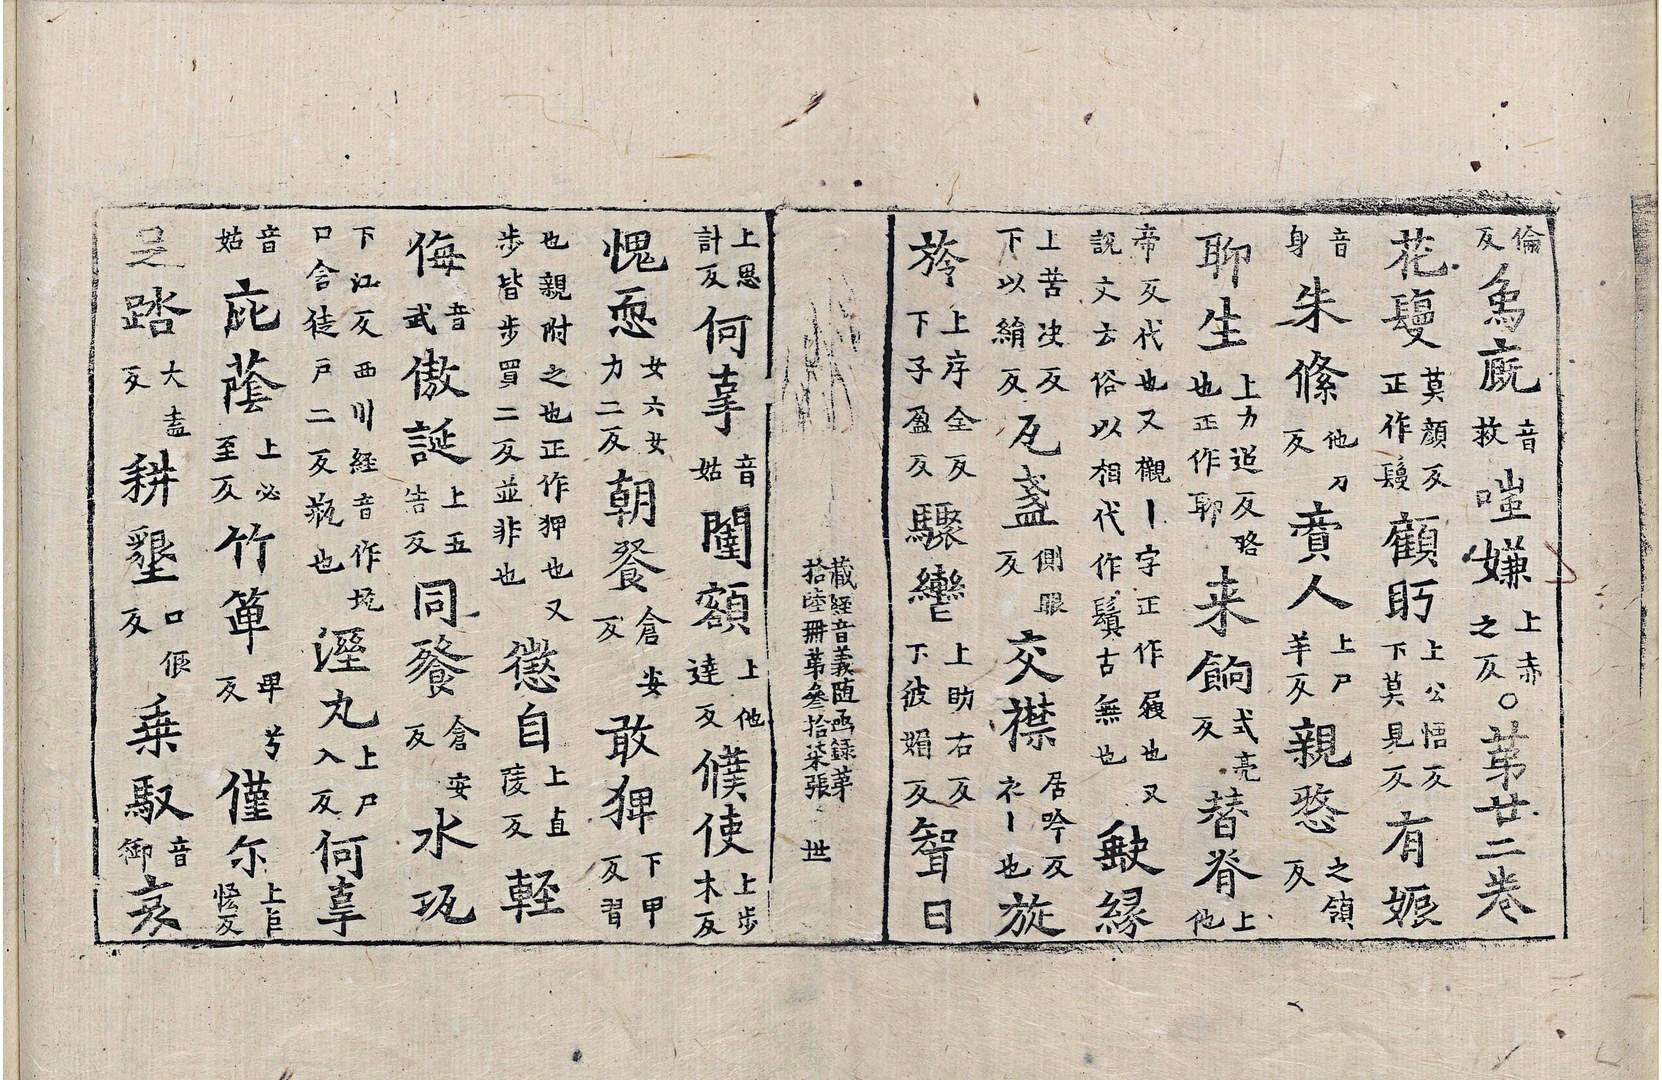 倫反為廐音救嗤嫌上赤之反〇苐廿二卷
花鬘莫顔反正作鬘顧眄上公悟反下莫見反有娠
音身朱絛他刀反賣人上尸羊反親愍之領反
聊生上力迢反賂也正作聊来餉式亮反替脊上他
帝反代也又櫬丨字正作屐也又說文云俗以相代作鬚古無也 缺縁
上苦决反下以絹反瓦盞側眼反交襟居吟反衣丨也旋
旍上序全反下子盈反驟轡上助右反下彼媚反智日
藏経音義随函録苐拾陸冊苐叄拾柒張 世
上思計反何辜音姑闥額上他達反僕使上步木反
愧恧女六女力二反朝飡倉安反敢狎下甲反習
也親附之也正作狎也又步皆步買二反並非也懲自上直陵反輕
侮音武傲誕上五告反同飡倉安反水瓨
下江反西川経音作㼚口含徒戸二反瓶也溼丸上尸入反何辜
音姑庇蔭上必至反竹箄卑兮反僅尓上巨恡反
足踏大盍反耕墾口佷反乗馭音御哀